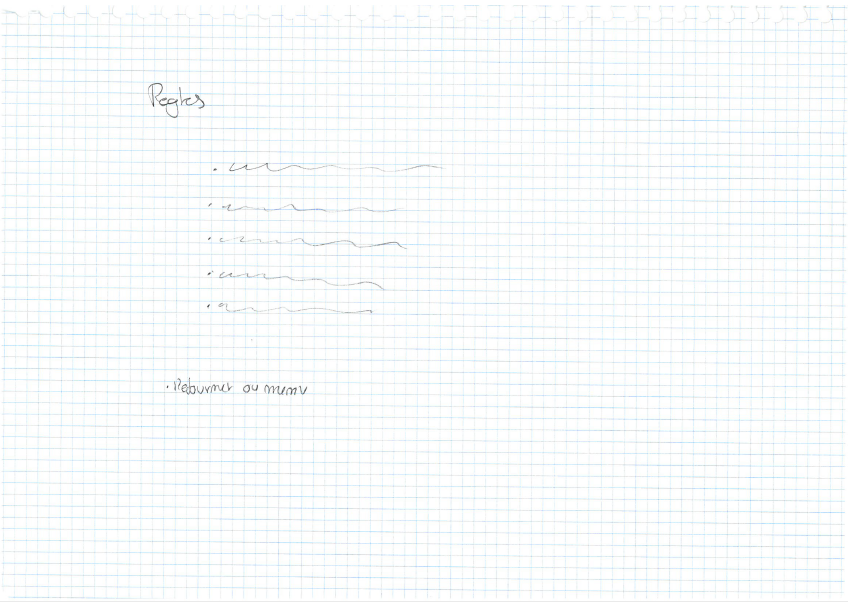 Regles
. Retourner au menu